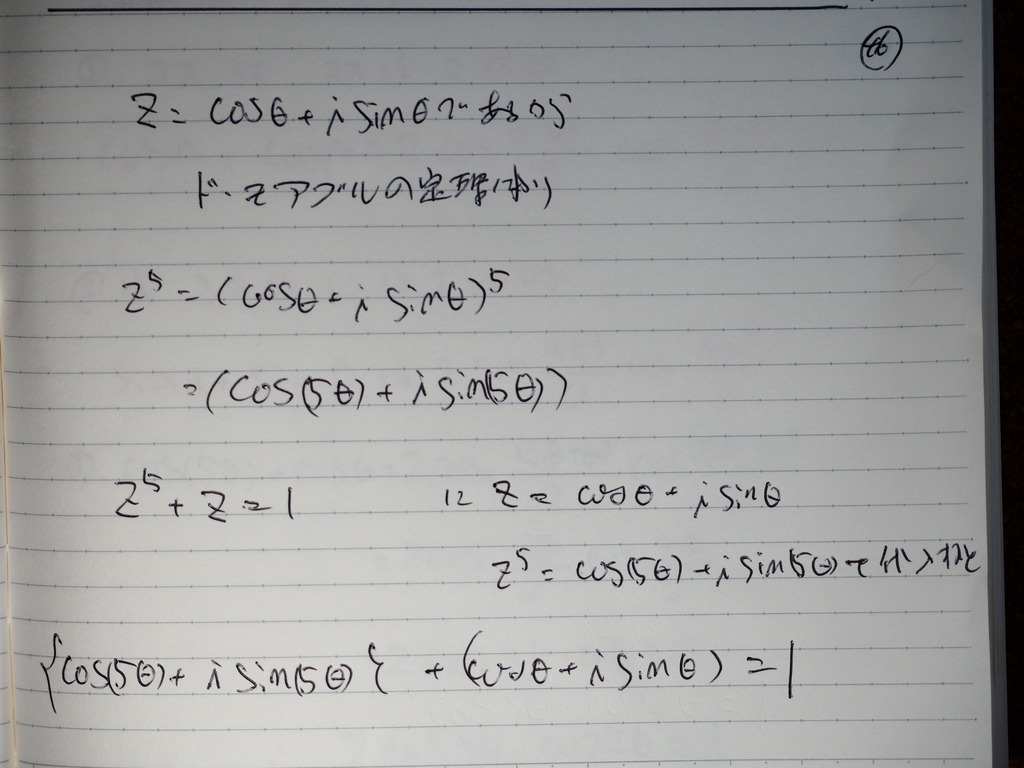 Z = cosθ + i sinθ であるから
ド・モアブルの定理により
Z⁵ = (cosθ + i sinθ)⁵
= (cos(5θ) + i sin(5θ))
Z⁵ + Z = 1 に Z = cosθ + i sinθ
Z⁵ = cos(5θ) + i sin(5θ) を代入すると
{cos(5θ) + i sin(5θ)} + (cosθ + i sinθ) = 1